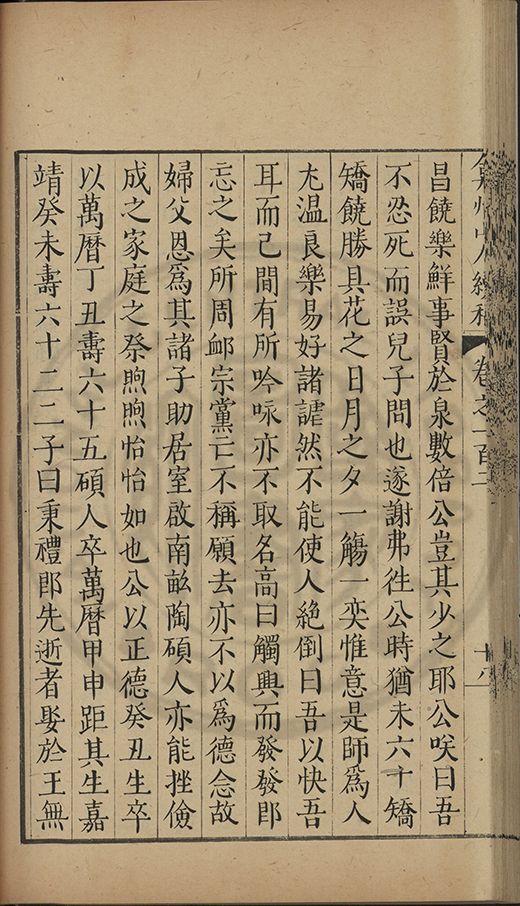 弇州山人續稿 卷之一百二 十八
昌饒樂鮮事賢於泉數倍公豈其少之耶公咲曰吾
不忍死而誤兒子問也遂謝弗徃公時猶未六十矯
矯饒勝具花之日月之夕一觴一奕惟意是師爲人
尤温良樂易好諸謔然不能使人絶倒曰吾以快吾
耳而已間有所吟咏亦不取名高曰觸興而發發即
忘之矣所周䘏宗黨亡不稱願去亦不以爲德念故
婦父恩爲其諸子助居室啟南畝陶碩人亦能挫儉
成之家庭之祭煦煦怡怡如也公以正德癸丑生卒
以萬曆丁丑壽六十五碩人卒萬曆甲申距其生嘉
靖癸未壽六十二二子曰秉禮郎先逝者娶於王無